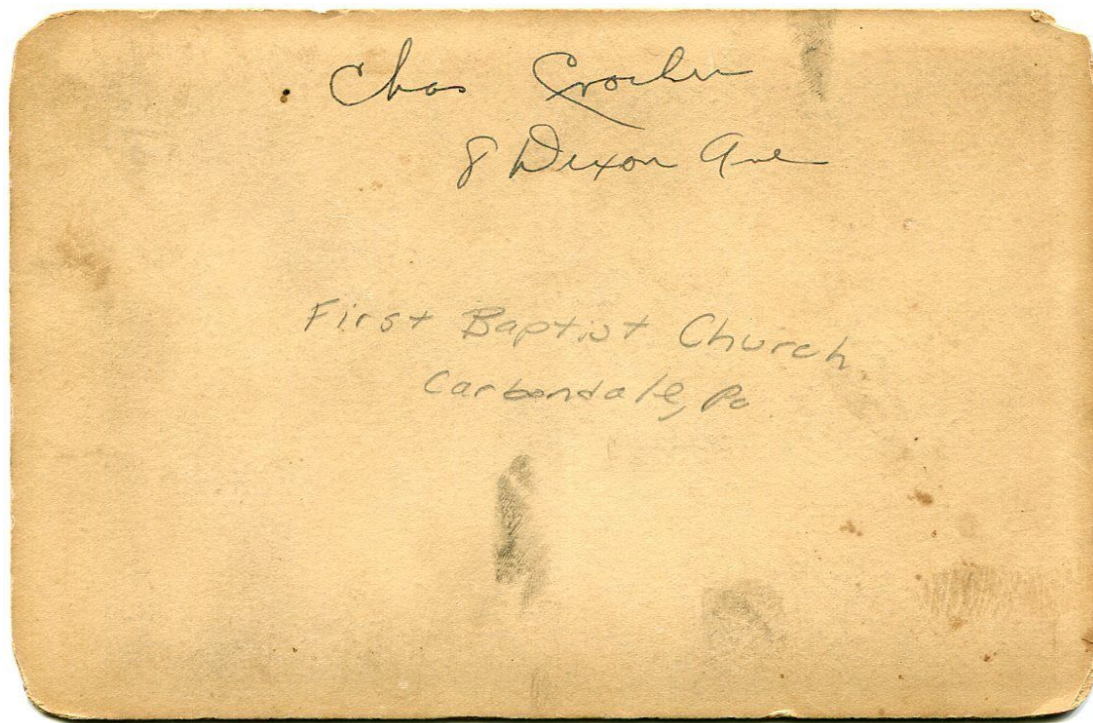 Chas Crocker
8 Dixon Ave
First Baptist Church
Carbondale, Pa